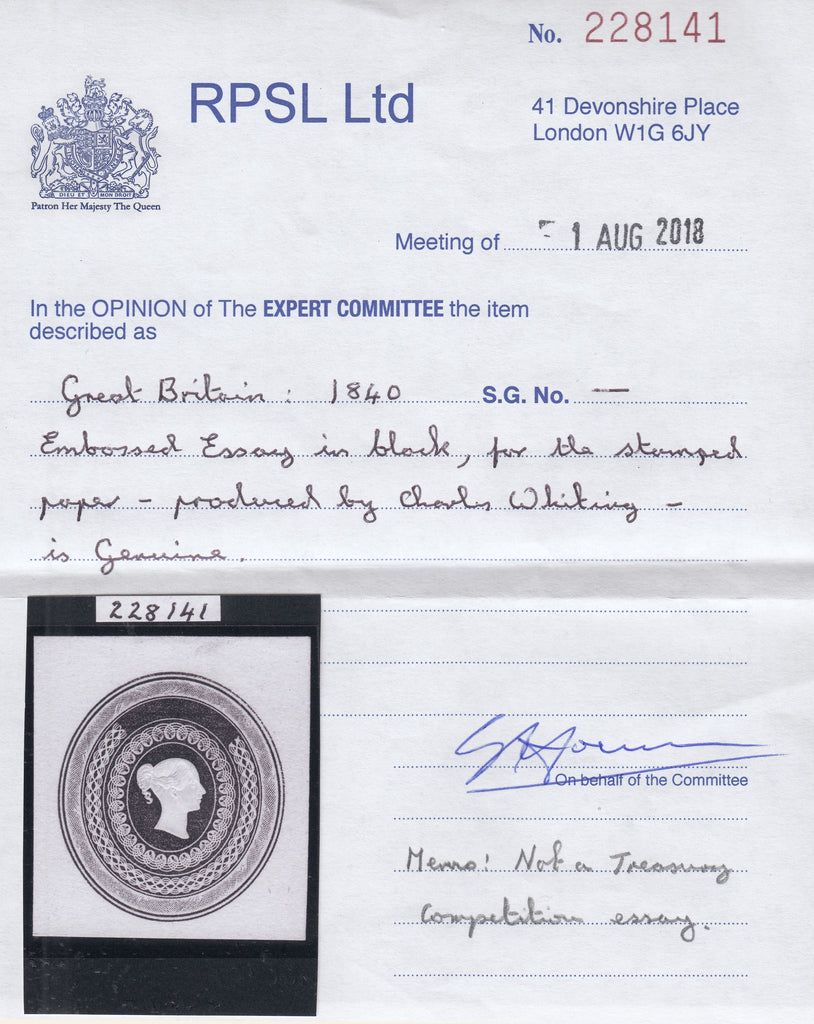 No. 228141
RPSL Ltd
41 Devonshire Place
London W1G 6JY
DIEU ET MON DROIT
Patron Her Majesty The Queen
Meeting of 1 AUG 2018
In the OPINION of The EXPERT COMMITTEE the item
described as
Great Britain : 1840 S.G. No. —
Embossed Essay in black, for the stamped
paper - produced by Charles Whiting -
is Genuine.
228141
On behalf of the Committee
Memo: Not a Treasury
Competition essay.